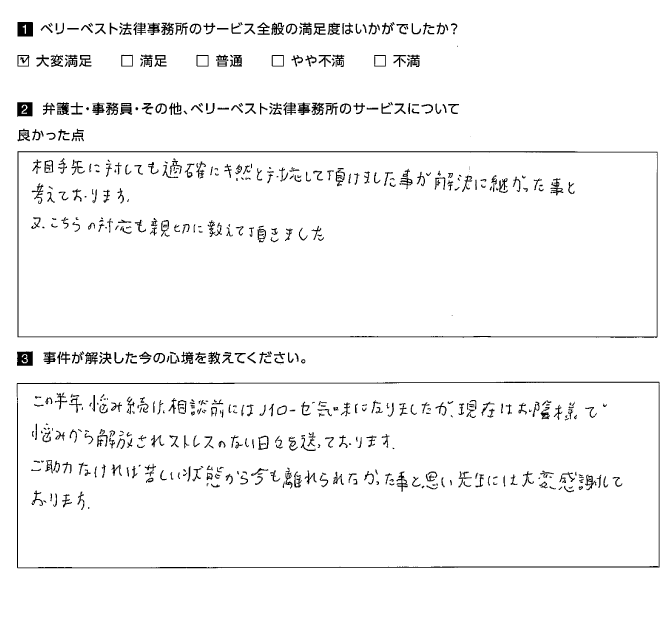 1 ベリーベスト法律事務所のサービス全般の満足度はいかがでしたか？
☑ 大変満足 □ 満足 □ 普通 □ やや不満 □ 不満
2 弁護士・事務員・その他、ベリーベスト法律事務所のサービスについて
良かった点
相手先に対しても適確にキ然と対応して頂けました事が解決に継がった事と
考えております。
又、こちらの対応も親切に教えて頂きました
3 事件が解決した今の心境を教えてください。
この半年、悩み続け、相談前にはノイローゼ気味になりましたが、現在はお陰様で
悩みから解放されストレスのない日々を送っております。
ご助力なければ苦しい状態から今も離れられなかった事と思い先生には大変感謝して
おります。